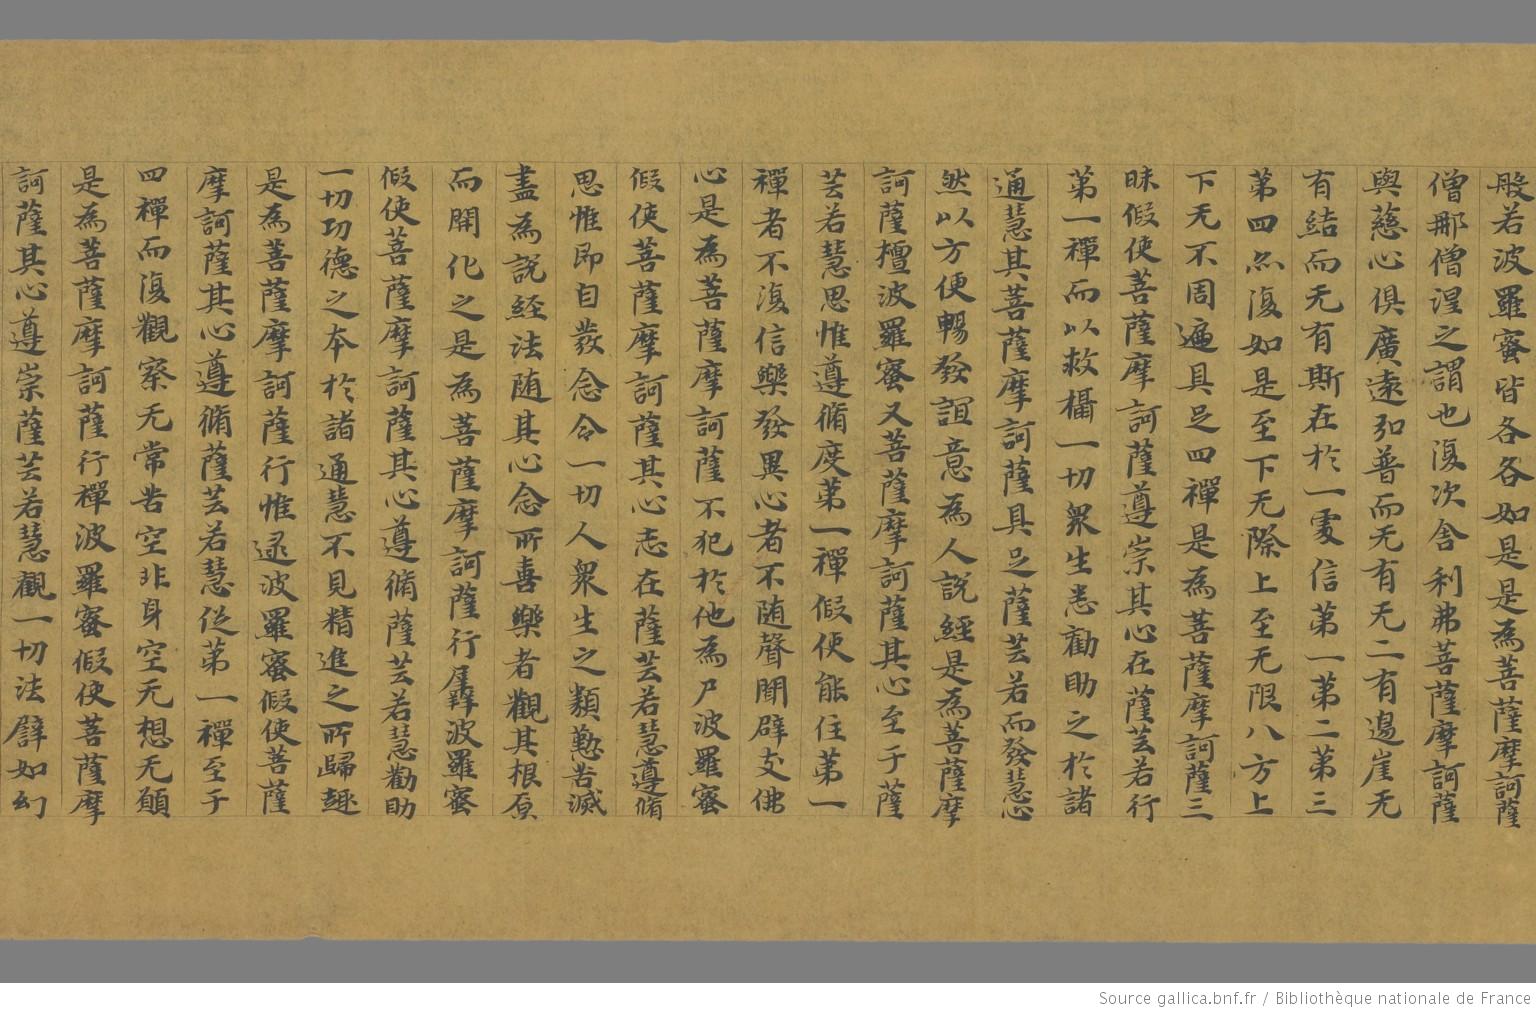 般若波羅蜜皆各各如是是為菩薩摩訶薩
僧那僧涅之謂也復次舍利弗菩薩摩訶薩
與慈心俱廣遠弘普而无有无二有邊崖无
有結而无有斯在於一處信第一第二第三
第四亦復如是至下无際上至无限八方上
下无不周遍具足四禪是為菩薩摩訶薩三
昧假使菩薩摩訶薩遵崇其心在薩芸若行
第一禪而以救攝一切眾生悉勸助之於諸
通慧其菩薩摩訶薩具足薩芸若而發慧心
然以方便暢發誼意為人說經是為菩薩摩
訶薩檀波羅蜜又菩薩摩訶薩其心至于薩
芸若慧思惟遵脩度第一禪假使能住第一
禪者不復信樂發異心者不随聲聞辟支佛
心是為菩薩摩訶薩不犯於他為尸波羅蜜
假使菩薩摩訶薩其心志在薩芸若慧遵脩
思惟即自發念令一切人眾生之類懃苦滅
盡為說經法随其心念所喜樂者觀其根原
而開化之是為菩薩摩訶薩行羼波羅蜜
假使菩薩摩訶薩其心遵脩薩芸若慧勸助
一切功德之本於諸通慧不見精進之所歸趣
是為菩薩摩訶薩行惟逮波羅蜜假使菩薩
摩訶薩其心遵脩薩芸若慧從第一禪至于
四禪而復觀察无常苦空非身空无想无願
是為菩薩摩訶薩行禪波羅蜜假使菩薩摩
訶薩其心遵崇薩芸若慧觀一切法譬如幻
Source gallica.bnf.fr / Bibliothèque nationale de France